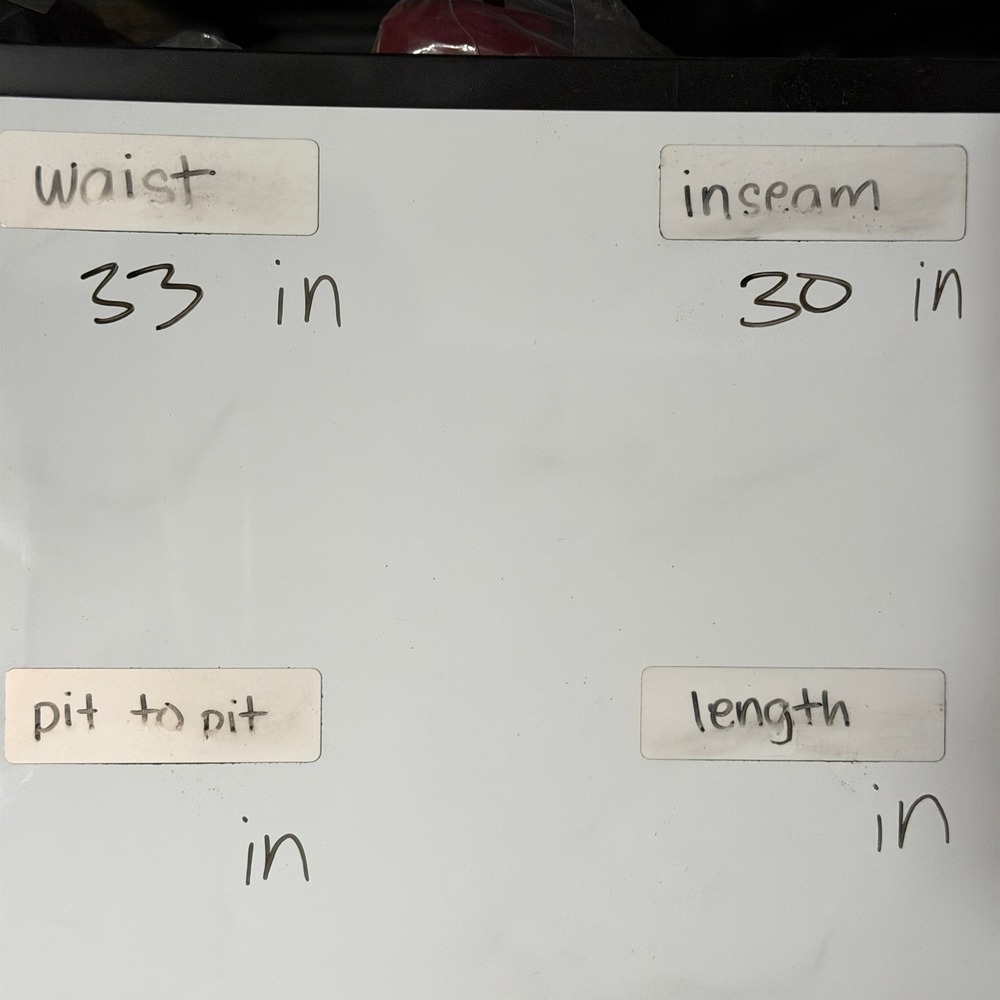 waist
inseam
33 in
30 in
pit to pit
length
in
in